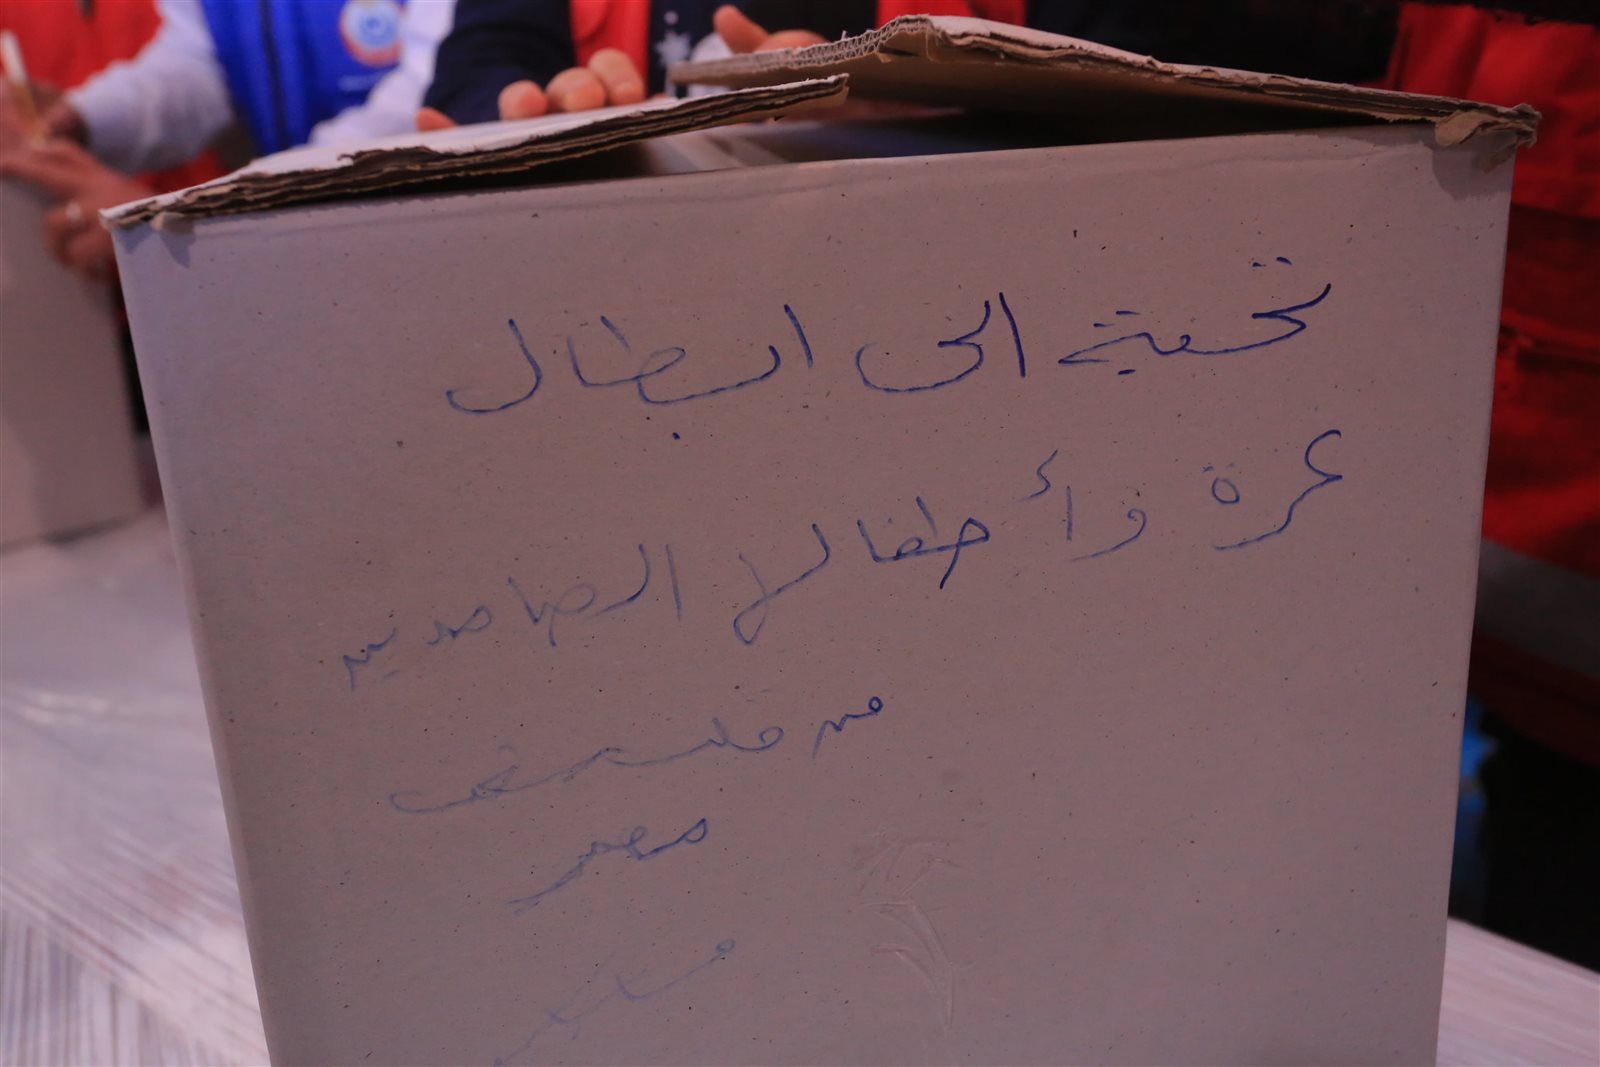 تحية الى ابطال
غزة وأطفالا الصامدين
من قلب
مصر